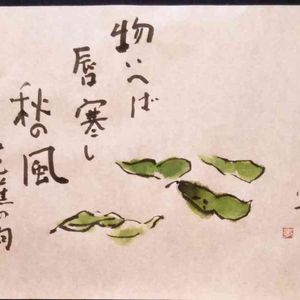 物いへば
唇寒し
秋の風
芭蕉の句